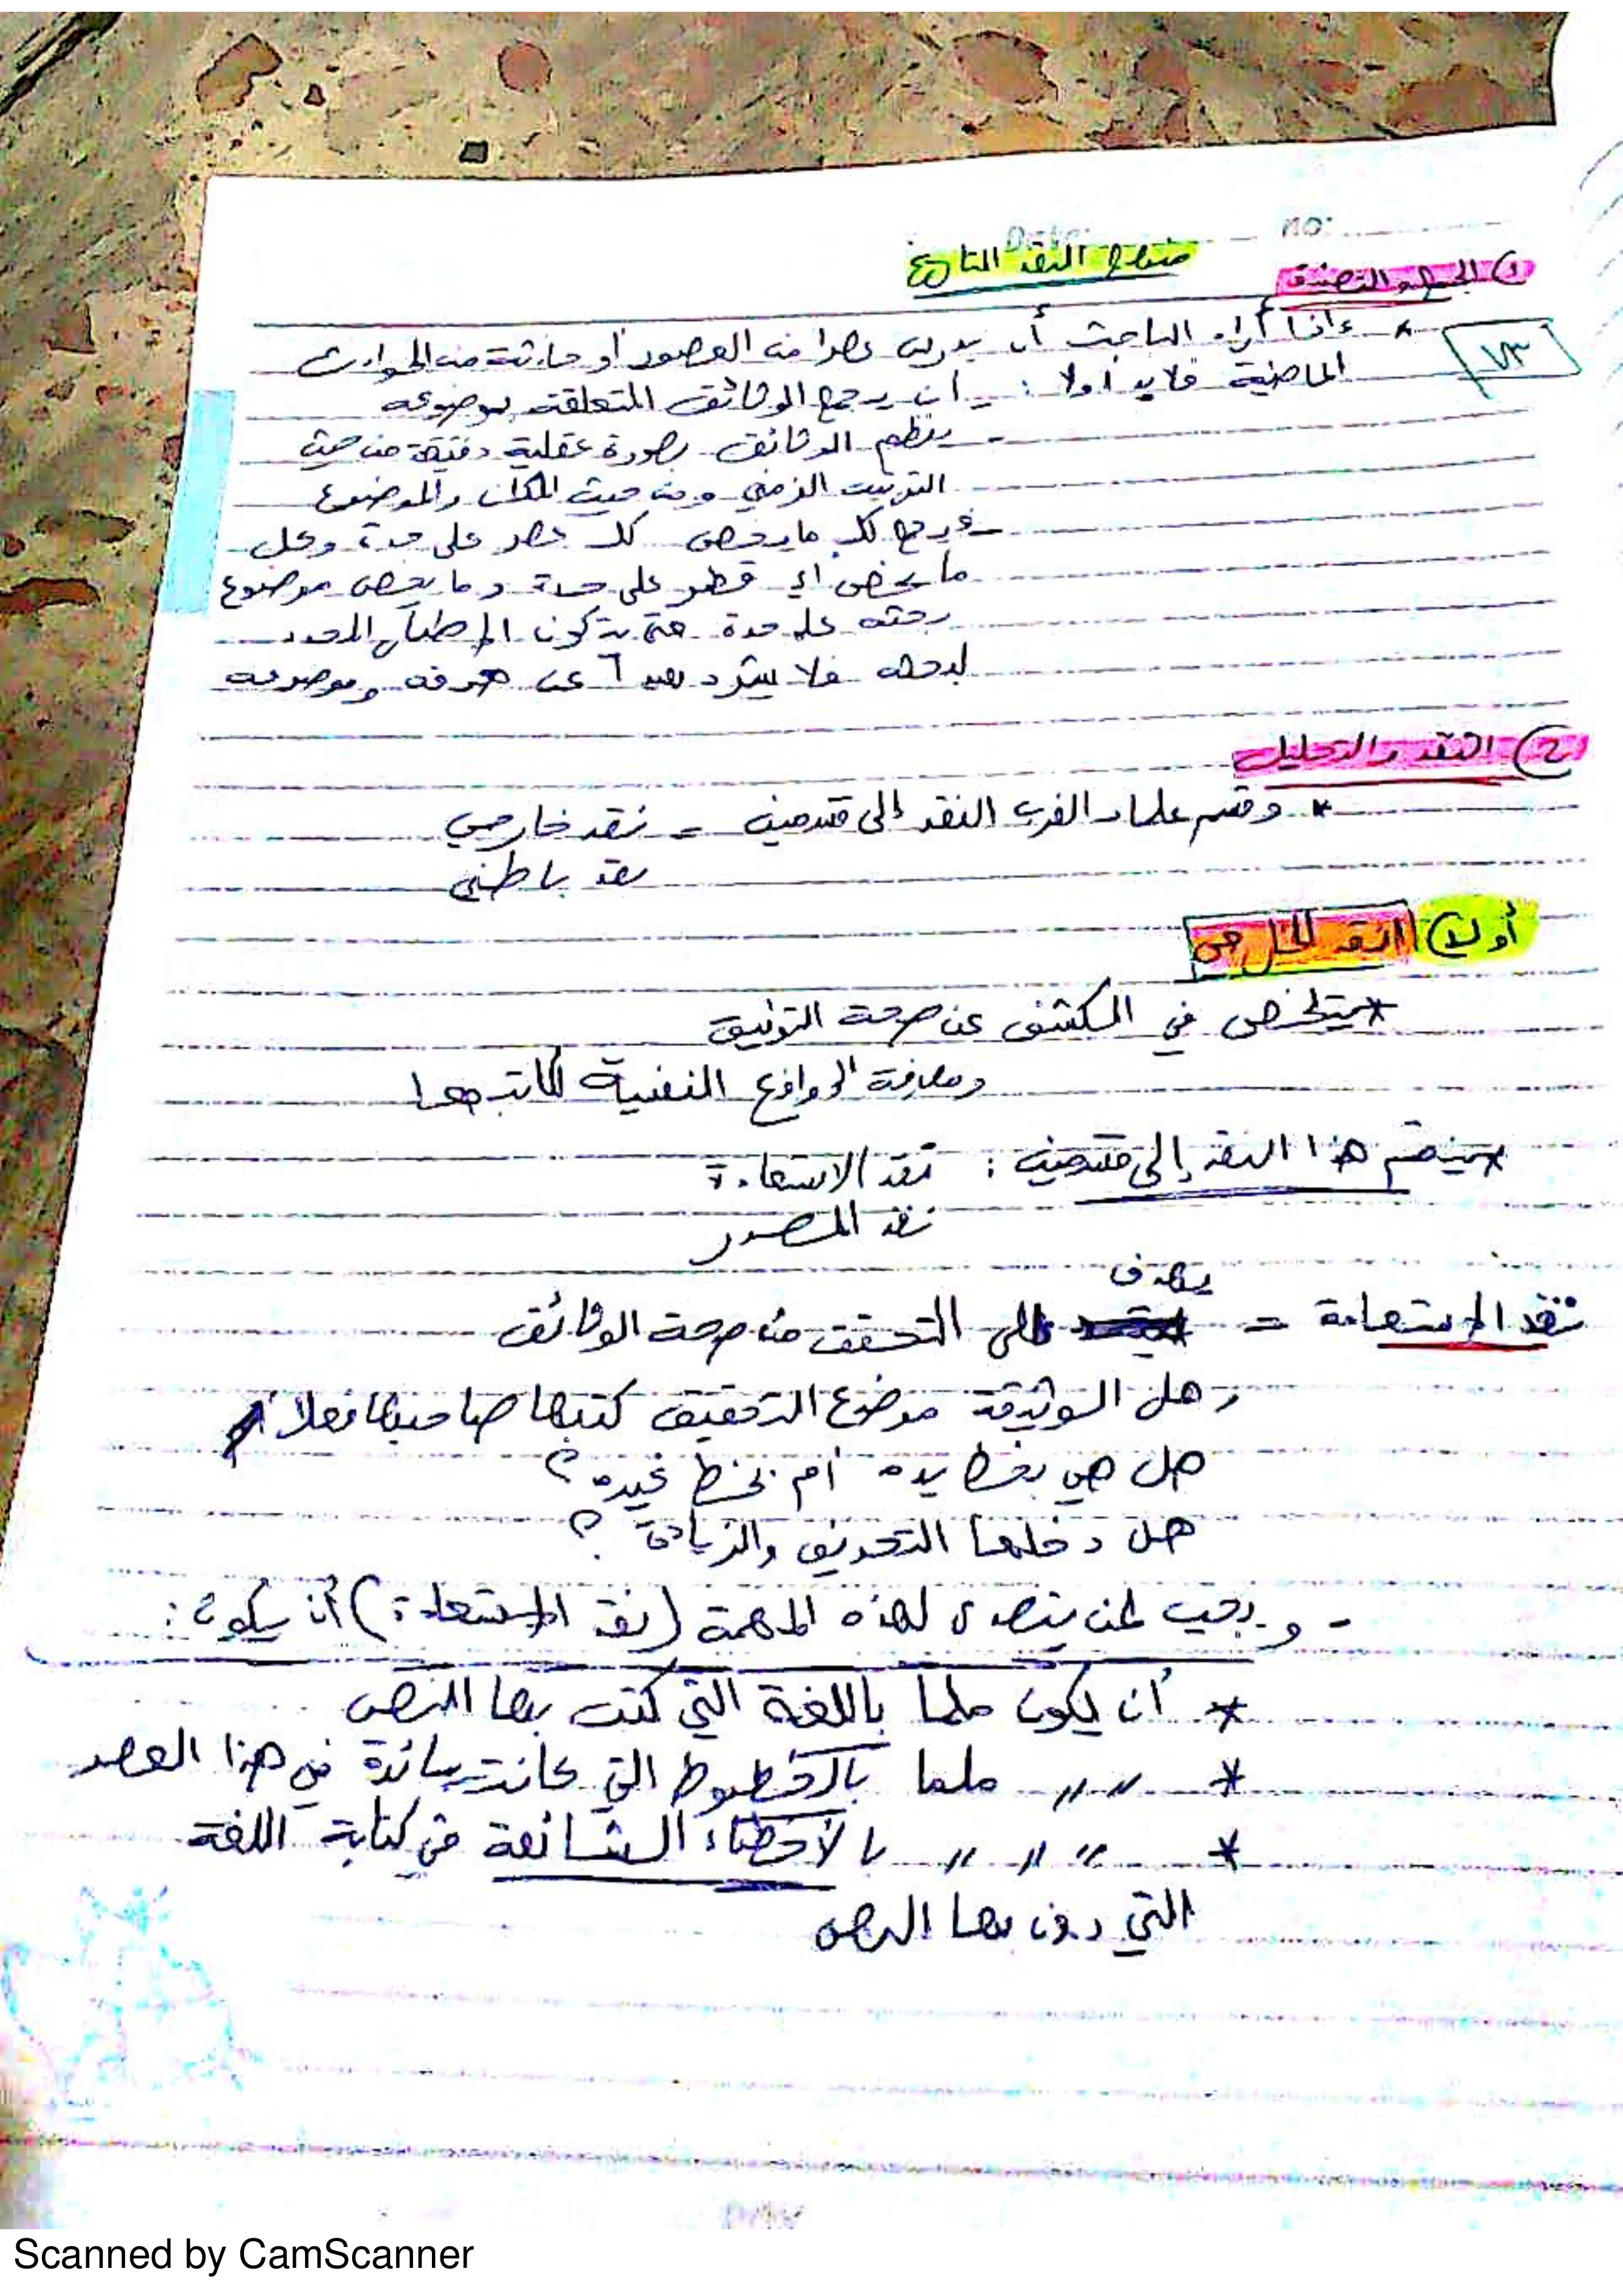 Date: no:
منهاج النقد التاريخي
١) الجمع والتصنيف
* إذا أراد الباحث أن يدرس عصرا من العصور أو حادثة من الحوادث
٧٣
الماضية فلابد أولا: - أن يجمع الوثائق المتعلقة بموضوعه
- ينظم الوثائق بصورة عقلية دقيقة من حيث
الترتيب الزمني ومن حيث المكان والموضوع
- فيجمع كل ما يخص كل عصر على حدة وكل
ما يخص أي قطر على حدة وما يخص موضوع
بحثه على حدة حتى يتكون الإطار المحدد
لبحثه فلا يشرد بعيدا عن هدفه وموضوعه
٢) النقد والتحليل
* وقسم علماء الغرب النقد إلى قسمين = نقد خارجي
نقد باطني
أولا) النقد الخارجي
* يتلخص في الكشف عن صحة التوثيق
ومعرفة الدوافع النفسية لكاتبها
* ينقسم هذا النقد إلى قسمين: نقد الاستعادة
نقد المصدر
يهدف
نقد الاستعادة = إلى التحقق من صحة الوثائق
وهل الوثيقة موضوع التحقيق كتبها صاحبها فعلا أم
هل هي بخط يده أم بخط غيره؟
هل دخلها التحريف والزيادة؟
- ويجب لمن يتصدى لهذه المهمة (نقد الاستعادة) أن يكون:
* أن يكون ملما باللغة التي كتب بها النص
* " " ملما بالخطوط التي كانت سائدة في هذا العصر
* " " " بالأخطاء الشائعة في كتابة اللغة
التي دون بها النص
Scanned by CamScanner